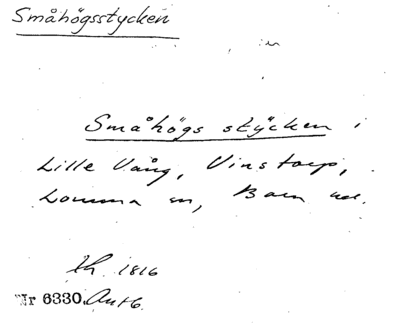 Småhögsstycken
Småhögs stÿcken i
Lille Vång, Vinstorp,
Lomma sn, Bara hd.
LM. 1816
Nr 6330. Ant 6.